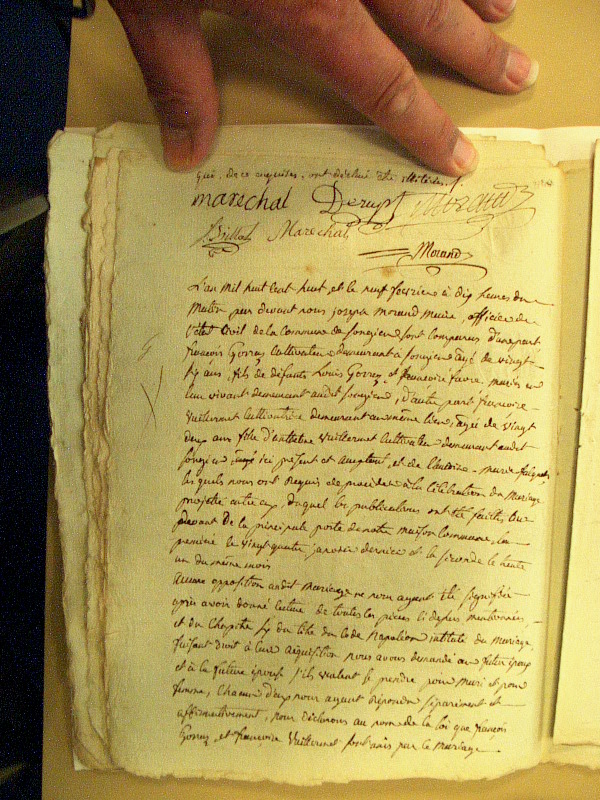 qui, de ce enquises, ont déclaré être illitérés
marechal Derupt Morand
J. Brillat Marechal
Morand
L'an mil huit Cent huit, et le neuf fevrier à dix heures du
Matin par devant nous joseph morand Maire, officier de
l'état Civil de la Commune de songieu sont comparus d'une part
françois Gorray Cultivateur demeurant à songieu agé de vingt
six ans, fils de défunts Louis Gorray et françoise favre, mariés en
leur vivant demeurant audit songieu, d'autre part françoise
Vuillermet Cultivatrice demeurant au même lieu, agée de vingt
deux ans fille d'anthelme Vuillermet Cultivateur demeurant audit
songieu ici présent et acceptant, et de Claudine marie
les quels nous ont Requis de proceder à la Célébration du Mariage
projetté entre eux, duquel les publications ont été faites, Au
devant de la principale porte de notre maison Commune, la
premiere le vingt quatre janvier dernier et la seconde le trente
un du même mois
Aucune opposition audit Mariage ne nous ayant été signifiée
après avoir donné lecture de toutes les pièces ci dessus mentionnées
et du Chapitre six du titre du Code Napoleon intitulé du mariage
faisant droit à leur réquisition nous avons demandé au futur époux
et à la future épouse s'ils veulent se prendre pour mari et pour
femme, Chacun d'eux nous ayant répondu séparément et
affirmativement, nous déclarons au nom de la loi que françois
Gorray, et françoise Vuillermet sont unis par le mariage